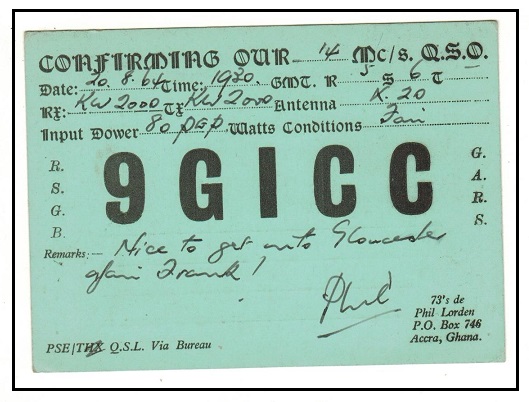 CONFIRMING OUR 14 Mc/s. Q.S.O.
Date: 20.8.64 Time: 1930. GMT. R 5 S 6 T
RX: KW2000 TX KW2000 Antenna K.20
Input Power 80 PEP Watts Conditions Fair
R. S. G. B.
9GICC
G. A. R. S.
Remarks:- Nice to get into Gloucester
again Frank!
Phil
73's de
Phil Lorden
P.O. Box 746
Accra, Ghana.
PSE/THX Q.S.L. Via Bureau